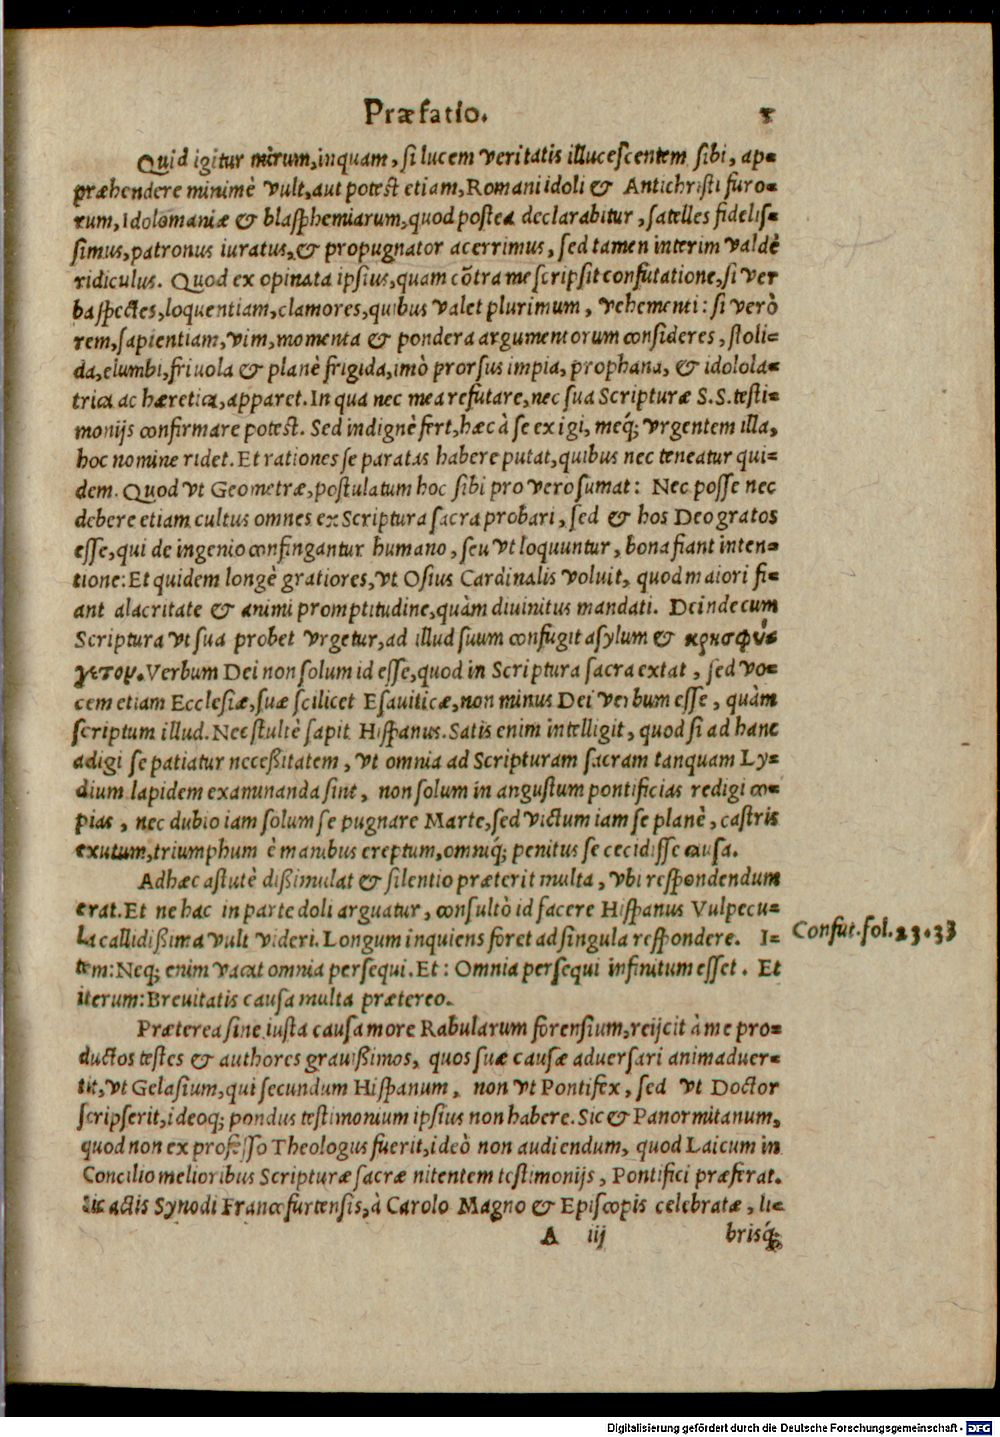 Præfatio. 5
Quid igitur mirum, inquam, si lucem veritatis illucescentem sibi, ap-
præhendere minimè vult, aut potest etiam, Romani idoli & Antichristi furo-
rum, Idolomaniæ & blasphemiarum, quod postea declarabitur, satelles fidelis-
simus, patronus iuratus, & propugnator acerrimus, sed tamen interim valdè
ridiculus. Quod ex opinata ipsius, quam cõtra me scripsit confutatione, si ver
ba spectes, loquentiam, clamores, quibus valet plurimum, vehementi: si verò
rem, sapientiam, vim, momenta & pondera argumentorum consideres, stoli-
da, elumbi, friuola & planè frigida, imò prorsus impia, prophana, & idolola-
trica ac hæretica, apparet. In qua nec mea refutare, nec sua Scripturæ S.S. testi-
monijs confirmare potest. Sed indignè fert, hæc à se exigi, meq; vrgentem illa,
hoc nomine ridet. Et rationes se paratas habere putat, quibus nec teneatur qui-
dem. Quod vt Geometræ, postulatum hoc sibi pro vero sumat: Nec posse nec
debere etiam cultus omnes ex Scriptura sacra probari, sed & hos Deo gratos
esse, qui de ingenio confingantur humano, seu vt loquuntur, bona fiant inten-
tione: Et quidem longè gratiores, vt Osius Cardinalis voluit, quod maiori fi-
ant alacritate & animi promptitudine, quàm diuinitus mandati. Deinde cum
Scriptura vt sua probet vrgetur, ad illud suum confugit asylum & κρησφύ-
γετον. Verbum Dei non solum id esse, quod in Scriptura sacra extat, sed vo-
cem etiam Ecclesiæ, suæ scilicet Esauiticæ, non minus Dei verbum esse, quàm
scriptum illud. Nec stultè sapit Hispanus. Satis enim intelligit, quod si ad hanc
adigi se patiatur necessitatem, vt omnia ad Scripturam sacram tanquam Ly-
dium lapidem examinanda sint, non solum in angustum pontificias redigi co-
pias, nec dubio iam solum se pugnare Marte, sed victum iam se planè, castris
exutum, triumphum è manibus ereptum, omniq́; penitus se cecidisse causa.
Ad hæc astutè dissimulat & silentio præterit multa, vbi respondendum
erat. Et ne hac in parte doli arguatur, consultò id facere Hispanus Vulpecu-
la callidissima vult videri. Longum inquiens foret ad singula respondere. I-
tem: Neq; enim vacat omnia persequi. Et: Omnia persequi infinitum esset. Et
iterum: Breuitatis causa multa prætereo.
Confut. fol. 23. 33
Præterea sine iusta causa more Rabularum forensium, reijcit à me pro-
ductos testes & authores grauissimos, quos suæ causæ aduersari animaduer-
tit, vt Gelasium, qui secundum Hispanum, non vt Pontifex, sed vt Doctor
scripserit, ideoq; pondus testimonium ipsius non habere. Sic & Panormitanum,
quod non ex professo Theologus fuerit, ideò non audiendum, quod Laicum in
Concilio melioribus Scripturæ sacræ nitentem testimonijs, Pontifici præferat.
Sic actis Synodi Francofurtensis, à Carolo Magno & Episcopis celebratæ, li-
A iij brisq́;
Digitalisierung gefördert durch die Deutsche Forschungsgemeinschaft - DFG